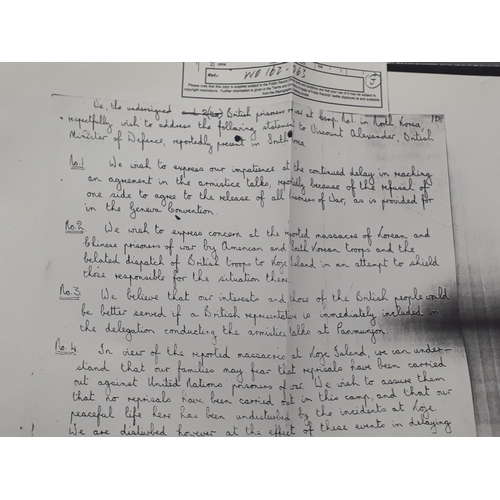 Ref.: WO 162-263
Please note that this copy is supplied subject to the Public Record
copyright restrictions. Further information is given in the
J
We, the undersigned British prisoners of war at Camp No.1 in North Korea,
respectfully wish to address the following statement to Viscount Alexander, British
Minister of Defence, reportedly present in
No.1 We wish to express our impatience at the continued delay in reaching
an agreement in the armistice talks, reportedly because of the refusal of
one side to agree to the release of all Prisoners of War, as is provided for
in the Geneva Convention.
No.2 We wish to express concern at the reported massacre of Korean and
Chinese prisoners of war by American and South Korean troops and the
belated dispatch of British troops to Koje Island in an attempt to shield
those responsible for the situation there.
No.3 We believe that our interests and those of the British people would
be better served if a British representative is immediately included in
the delegation conducting the armistice talks at Panmunjon.
No.4 In view of the reported massacres at Koje Island, we can under-
stand that our families may fear that reprisals have been carried
out against United Nations prisoners of war. We wish to assure them
that no reprisals have been carried out in this camp, and that our
peaceful life here has been undisturbed by the incidents at Koje.
We are disturbed however at the effect of these events in delaying